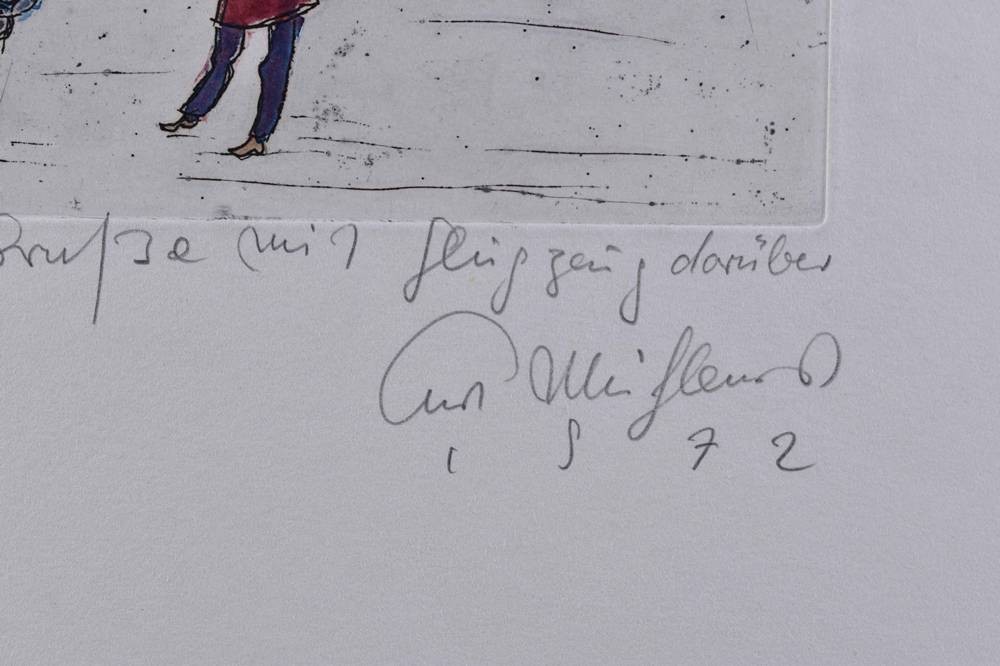 mit Flugzeug darüber
Curt Mühlenhaupt
1972